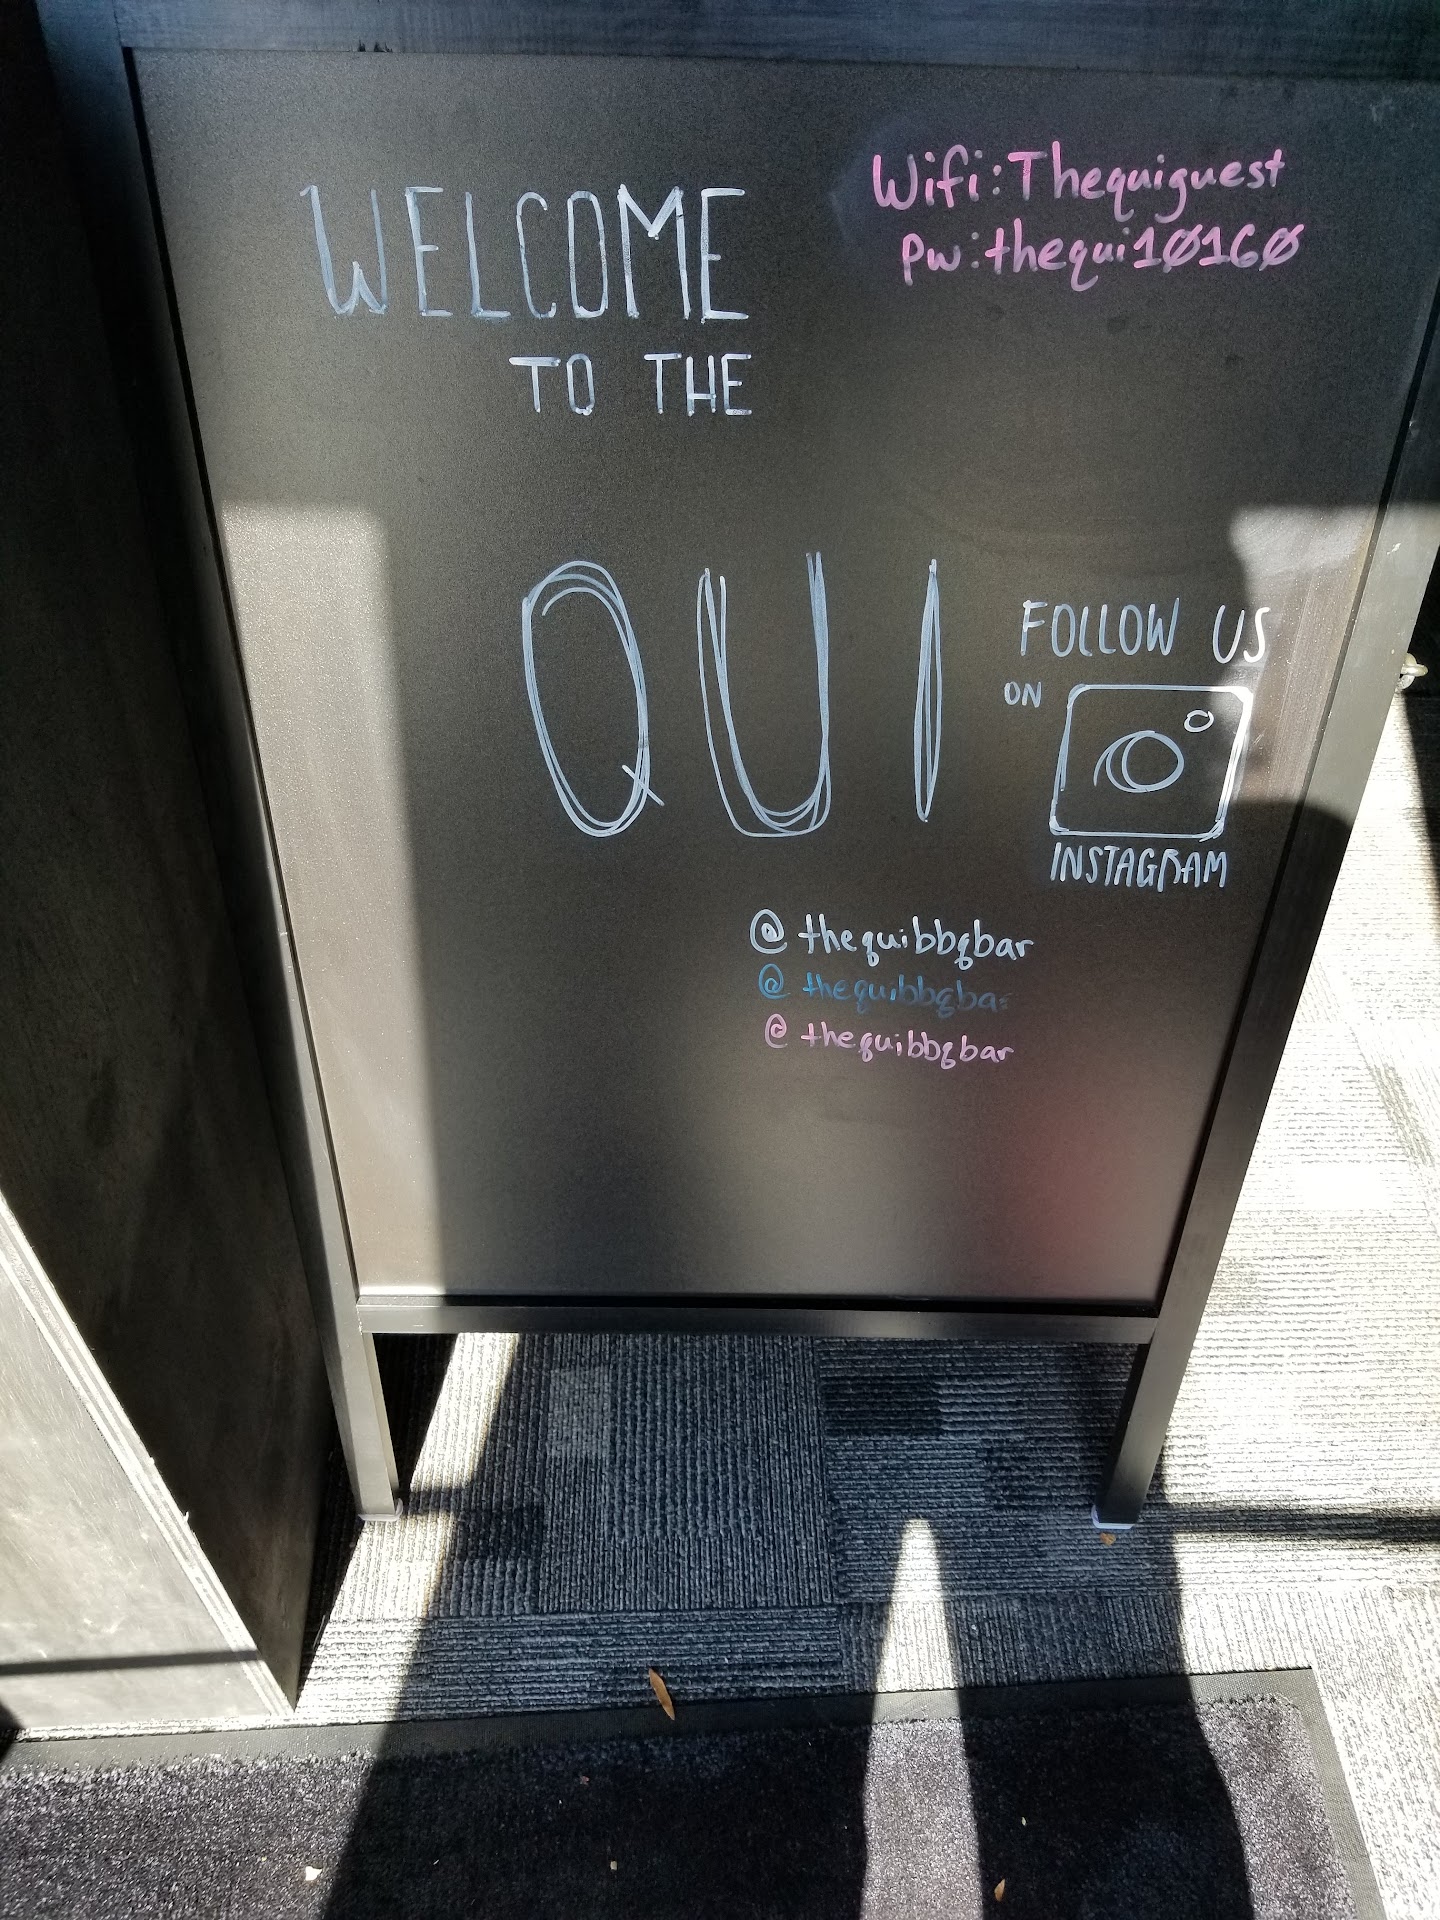 WELCOME
TO THE
QUI
Wifi:Thequiguest
pw:thequi10160
FOLLOW US
ON
INSTAGRAM
@thequibbqbar
@thequibbqbar
@thequibbqbar